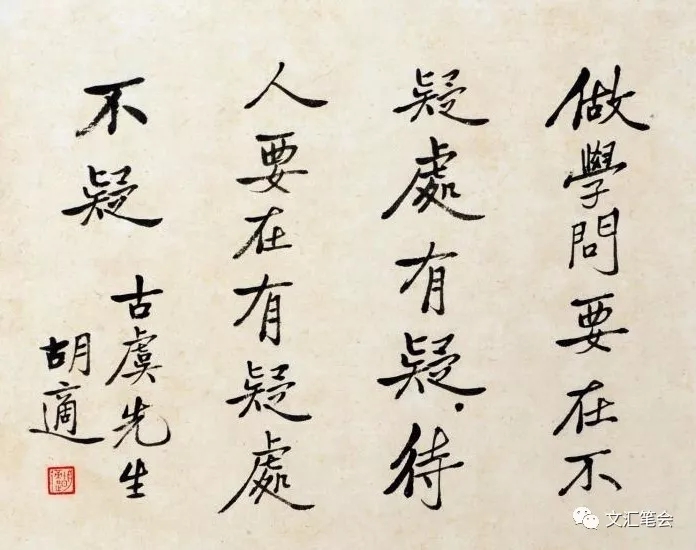 做學問要在不
疑處有疑.待
人要在有疑處
不疑
古虞先生
胡適
文汇笔会